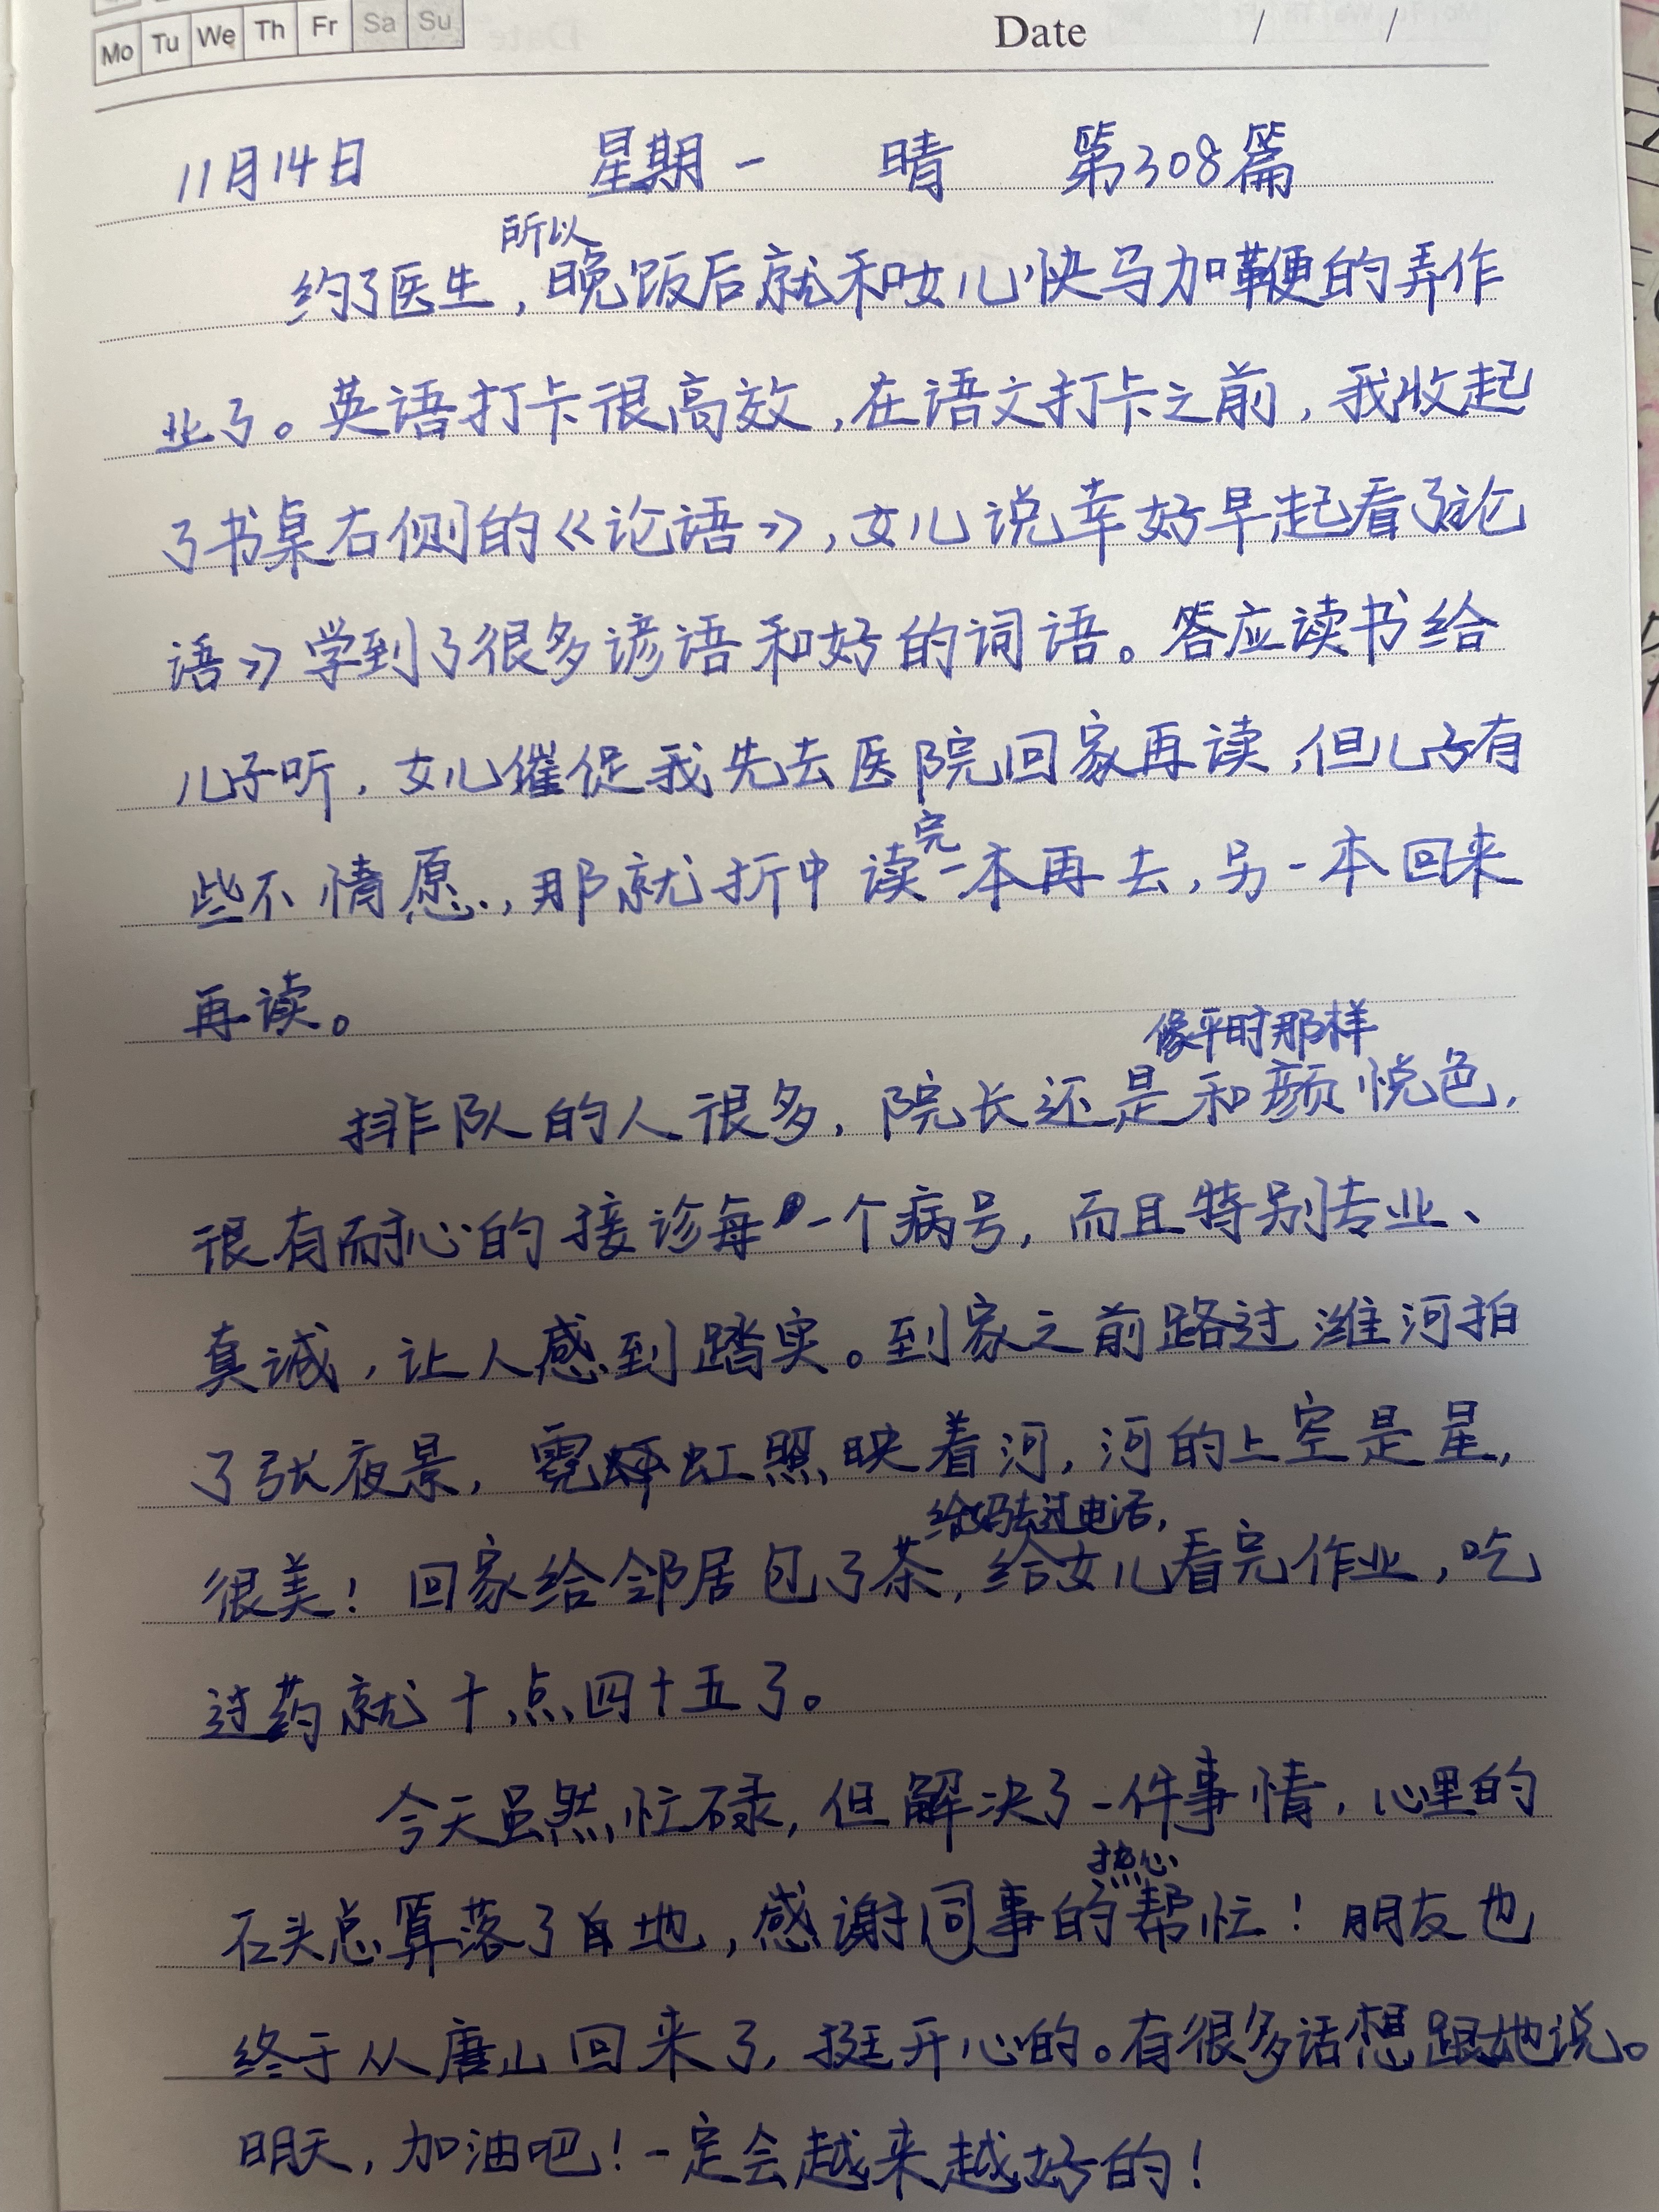 Mo Tu We Th Fr Sa Su Date / /
11月14日 星期一 晴 第308篇
所以
约了医生,晚饭后就和女儿快马加鞭的弄作
业了。英语打卡很高效,在语文打卡之前,我收起
了书桌右侧的《论语》,女儿说幸好早起看了论
语》学到了很多谚语和好的词语。答应读书给
儿子听,女儿催促我先去医院回家再读,但儿子有
完
些不情愿,那就折中读一本再去,另一本回来
再读。
像平时那样
排队的人很多,院长还是和颜悦色,
很有耐心的接诊每一个病号,而且特别专业、
真诚,让人感到踏实。到家之前路过潍河拍
了张夜景,霓虹照映着河,河的上空是星,
给妈去过电话,
很美!回家给邻居包了茶,给女儿看完作业,吃
过药就十点四十五了。
今天虽然忙碌,但解决了一件事情,心里的
热心
石头总算落了地,感谢同事的帮忙!朋友也
终于从唐山回来了,挺开心的。有很多话想跟她说。
明天,加油吧!一定会越来越好的!